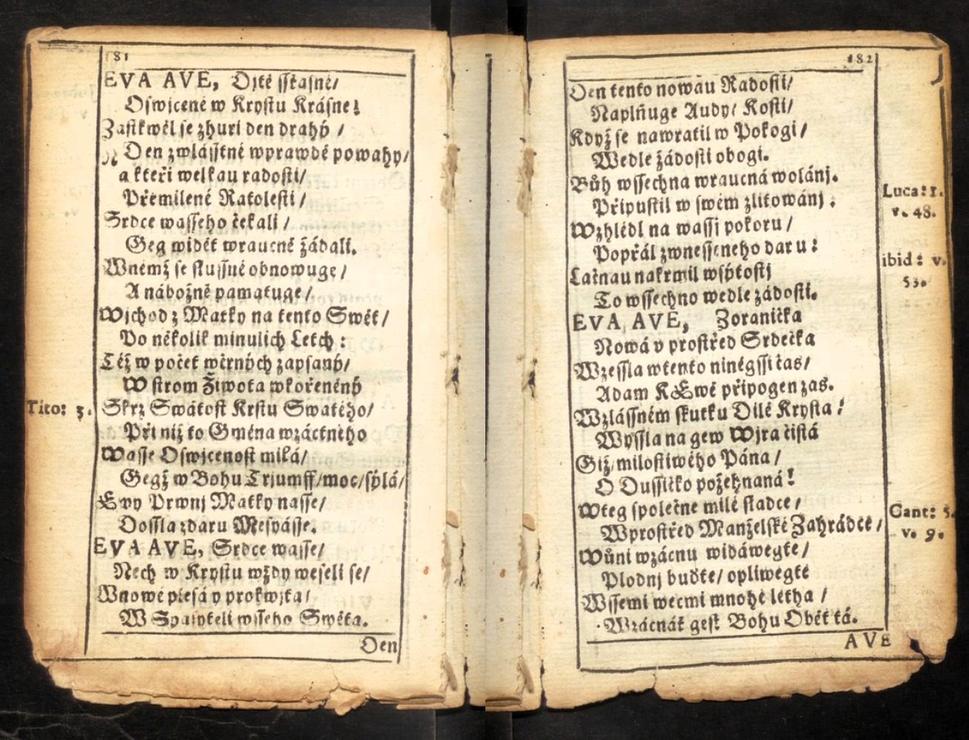 181
EVA AVE, Djtě sstastné/
Oswjcené w Krystu Krásné:
Zastkwěl se zhuri den drahý /
Den zwlásstně wprawdě powahy/
a kteři welkau radostí/
Přemilené Ratolesti/
Srdce wasseho čekali/
Geg widět wraucně žádali.
Wněmž se slussně obnowuge/
A nábožně pamatuge/
Wjchod z Matky na tento Swět/
Po několik minulich Leth:
Též w počet wěrných zapsaný/
W strom Žiwota wkořeněný
Tito: 3.
Skrz Swátost Krstu Swatého/
Při niž to Gména wzáctného
Wasse Oswjcenost milá/
Gegž w Bohu Trjumff/moc/sýlá/
Ewy Prwnj Matky nasse/
Dossla zdaru Mesyásse.
EVA AVE, Srdce wasse/
Nech w Krystu wždy weselj se/
Wnowé plesá y prokwjta/
W Spasyteli wsseho Swěta.
Den
182
Den tento nowau Radosti/
Naplňuge Audy/ Kosti/
Když se nawratil w Pokogi/
Wedle žádosti obogi.
Bůh wssechna wraucná wolánj.
Připustil w swém zlitowánj:
Luca: 1.
v. 48.
Wzhlédl na wassi pokoru/
Popřál zwnesseneho daru:
ibid: v.
53.
Lačnau nakrmil wsýtostj
To wssechno wedle žádosti.
EVA AVE, Zoranička
Nowá v prostřed Srdečka
Wzessla w tento ninégssi čas/
Adam K Ewě připogen zas.
Wzlássném skutku Dilé Krysta:
Wyssla na gew Wjra čistá
Giž/ milostiwého Pána/
O Dussičko požehnaná!
Wteg společne milé sladce/
Cant: 5.
v. 9.
Wprostřed Manželské Zahrádce/
Wůni wzácnu widáwegte/
Plodnj buďte/ opliwegte
Wssemi wecmi mnohé letha/
Wzácnáť gest Bohu Oběť tá.
AVE